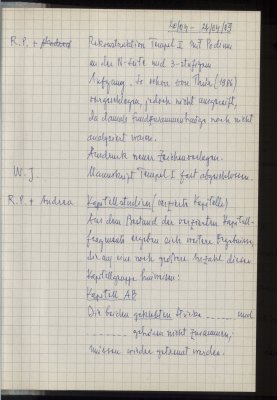 20/04 – 24/04/93
R.P. + Andrea Rekonstruktion Tempel I mit Podium
an der N-Seite und 3-stufigem
Aufgang. So schon von Thür (1986)
vorgeschlagen, jedoch nicht ausgereift,
da damals Fundzusammenhänge noch nicht
analysiert waren.
Ausdruck neuer Zeichenvorlagen.
W.J. Manuskript Tempel I fast abgeschlossen.
R.P. + Andrea Kapitellstudien (verzierte Kapitelle)
Aus dem Bestand der verzierten Kapitell-
fragmente ergeben sich weitere Ergebnisse,
die auf eine noch größere Anzahl dieser
Kapitellgruppe hinweisen:
Kapitell AB
Die beiden geklebten Stücke ......... und
............ gehören nicht zusammen,
müssen wieder getrennt werden.